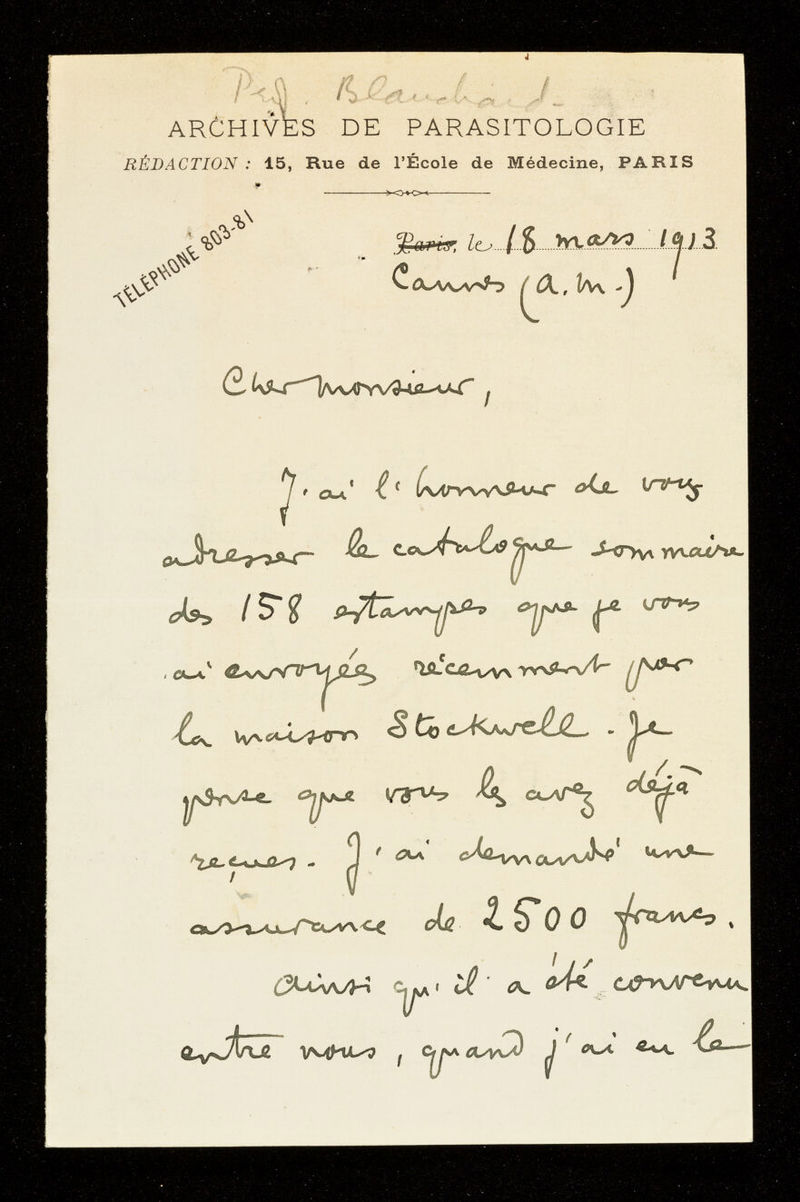 Prof. Blanchard.
ARCHIVES DE PARASITOLOGIE
RÉDACTION : 15, Rue de l'École de Médecine, PARIS
TÉLÉPHONE 803-81
Paris, le 18 mars 1913
Cannes (A. M.)
Cher Monsieur,
J'ai l'honneur de vous
adresser le catalogue sommaire
des 158 estampes que je vous
ai envoyées récemment par
la maison Stockwell. Je
pense que vous les avez déjà
reçues. J'ai demandé une
assurance de 2500 francs.
Ainsi qu'il a été convenu
entre nous, quand j'ai eu le